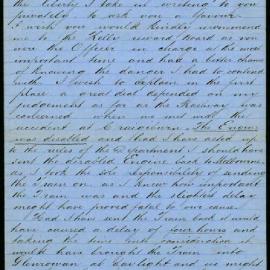 the liberty I take in writing to you
privately to ask you a favour
I wish you would kindly recommend
me to the Kelly reward board as you
were the Officer in charge at the most
important time and had a better chance
of knowing the danger I had to contend
with I wish to explain in the first
place a great deal depended on my
judgement as far as the Railway was
concerned when we met with the
accident at Craigieburn. The Engine
was disabled and had I have acted up
to the rules of the Department I should have
sent the disabled Engine back to Melbourne
as I took the sole responsibility of sending
the Train on as I knew how important
the Train was and the slightest delay
might have proved fatal to our cause.
Had I have sent the Train back it would
have caused a delay of four hours and
taking the time into consideration it
would have brought the Train into
Glenrowan at daylight and we might